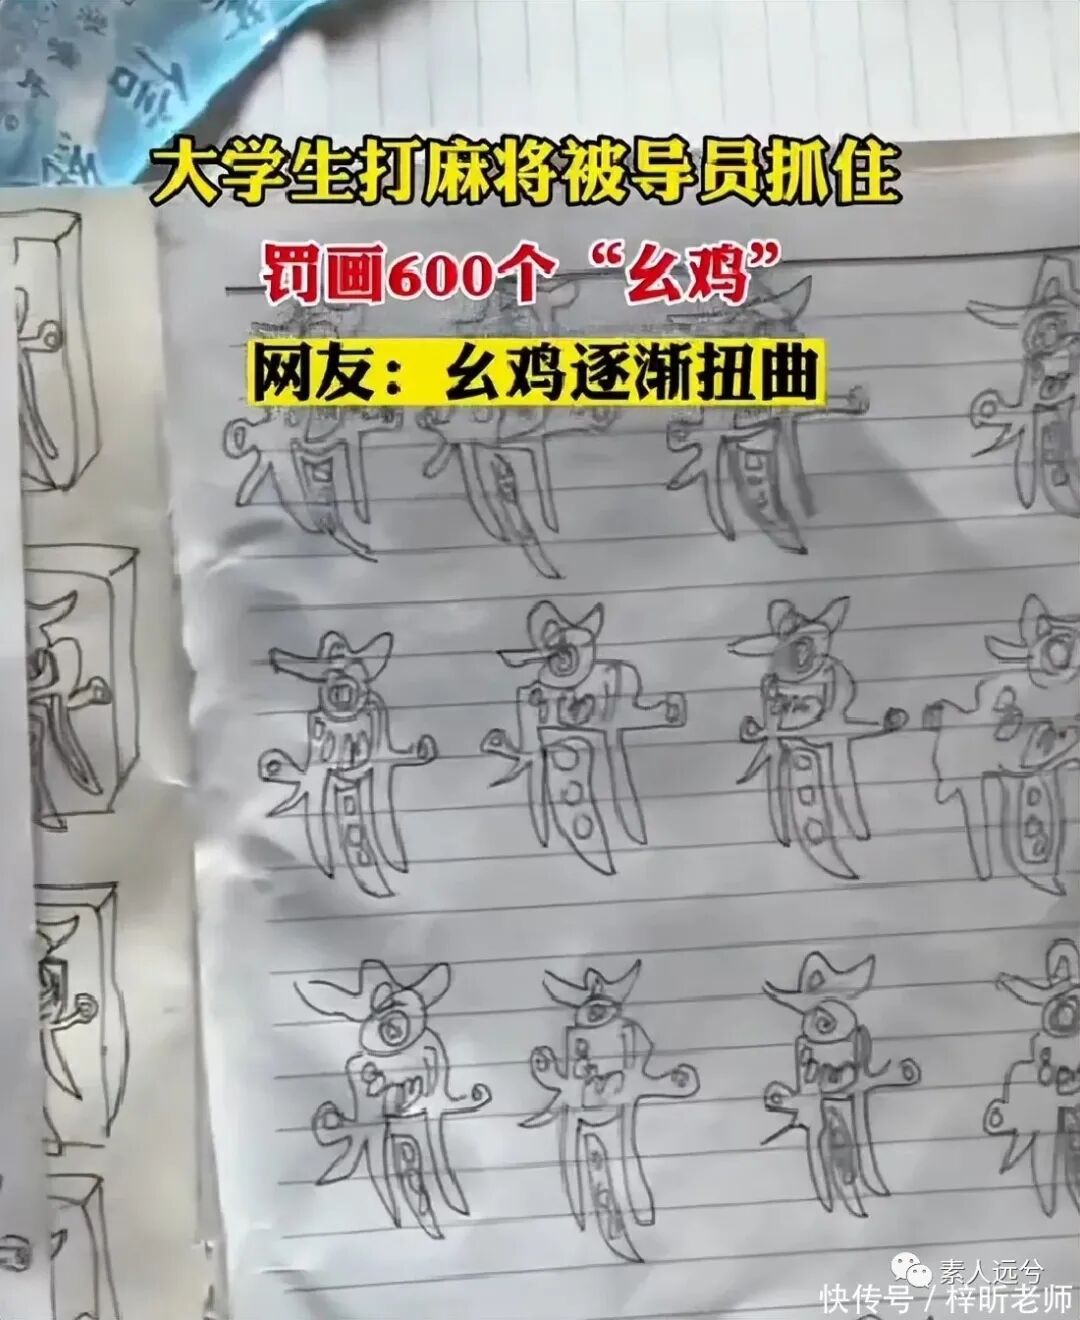 信
大学生打麻将被导员抓住
罚画600个“幺鸡”
网友：幺鸡逐渐扭曲
素人远兮
快传号／梓昕老师